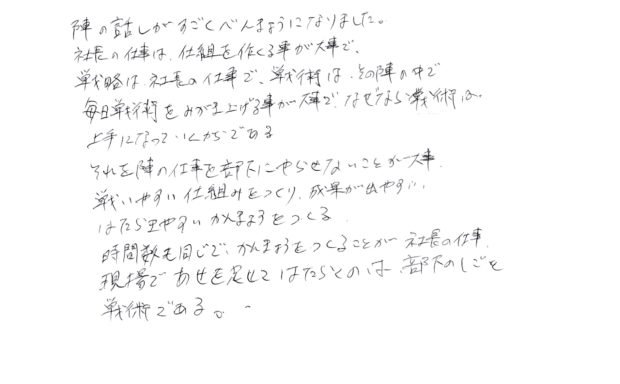 陣の話しがすごくべんきょうになりました。
社長の仕事は、仕組を作くる事が大事で、
戦略は社長の仕事で、戦術は、その陣の中で
毎日戦術をみがき上げる事が大事で、なぜなら戦術は、
上手になっていくからである
それを陣の仕事を部下にやらせないことが大事、
戦いやすい仕組みをつくり、成果が出やすい、
はたらきやすいかんきょうをつくる、
時間数も同じで、かんきょうをつくることが社長の仕事、
現場であせを流してはたらくのは部下のしごと
戦術である。